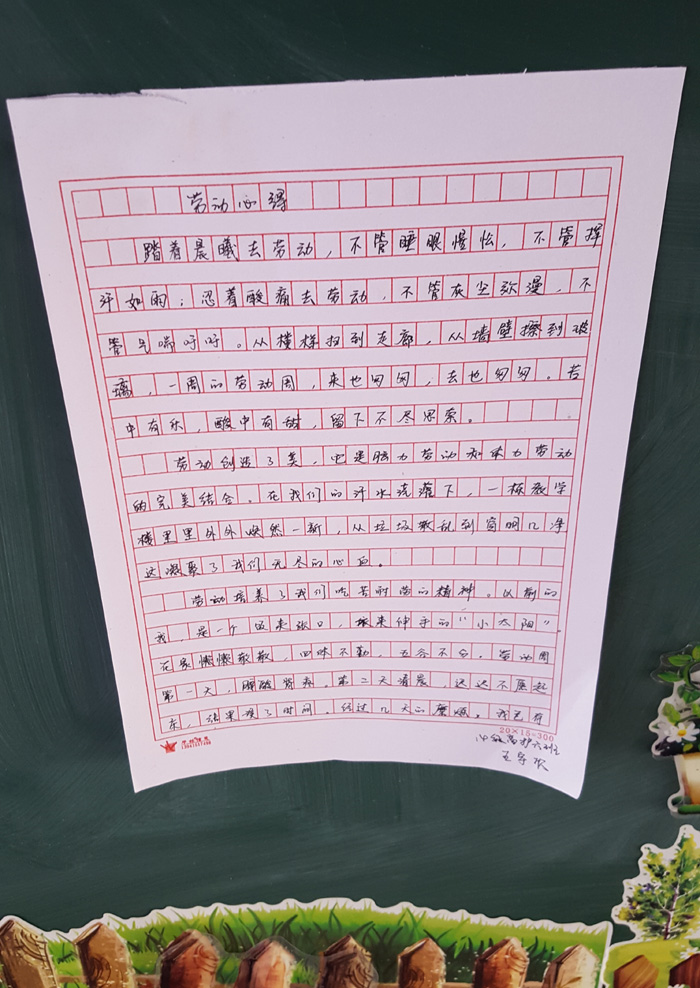 劳动心得
踏着晨曦去劳动，不管睡眼惺忪，不管挥
汗如雨；忍着酸痛去劳动，不管灰尘弥漫，不
管气喘吁吁。从楼梯扫到走廊，从墙壁擦到玻
璃，一周的劳动周，来也匆匆，去也匆匆。苦
中有乐，酸中有甜，留下不尽思索。
劳动创造了美，它是脑力劳动和体力劳动
的完美结合。在我们的汗水浇灌下，一栋教学
楼里里外外焕然一新，从垃圾散乱到窗明几净
这凝聚了我们无尽的心血。
劳动培养了我们吃苦耐劳的精神。以前的
我，是一个饭来张口，衣来伸手的"小太阳"。
在家懒懒散散，四体不勤，五谷不分。劳动周
第一天，腰酸背疼。第二天清晨，迟迟不愿起
床，结果误了时间。经过几天的磨炼，我已有
20×15=300
高护六班